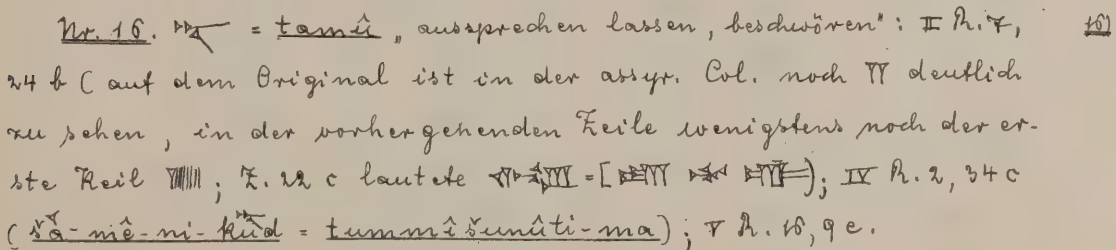 Nr. 16. 𒋻 = tamû „aussprechen lassen, beschwören": II R. 7, 16)
24 b (auf dem Original ist in der assyr. Col. noch deutlich
zu sehen, in der vorhergehenden Zeile wenigstens noch der er-
ste Keil ; Z. 22 c lautete = [ ); IV R. 2, 34 c
(šà-mê-ni-kud = tummîšunûti-ma); V R. 16, 9 e.